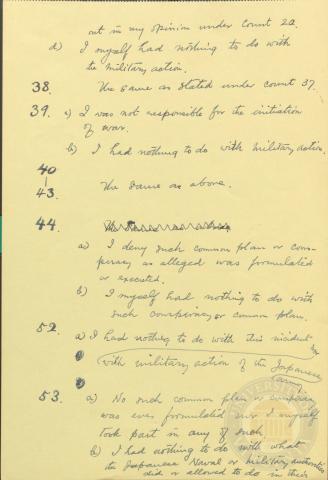 out in my opinion under Count 20.
d) I myself had nothing to do with
the military action.
38. The same as stated under count 37.
39. a) I was not responsible for the initiation
of war.
b) I had nothing to do with military action.
40
|
43. The same as above.
44.
a) I deny such common plan or cons-
piracy as alleged was formulated
or executed.
b) I myself had nothing to do with
such conspiracy or common plan.
52. a) I had nothing to do with this incident nor
with military action of the Japanese
army
53. a) No such common plan or conspiracy
was ever formulated nor I myself
took part in any of such
b) I had nothing to do with what
the Japanese Naval or Military authorities
did or allowed to do in their